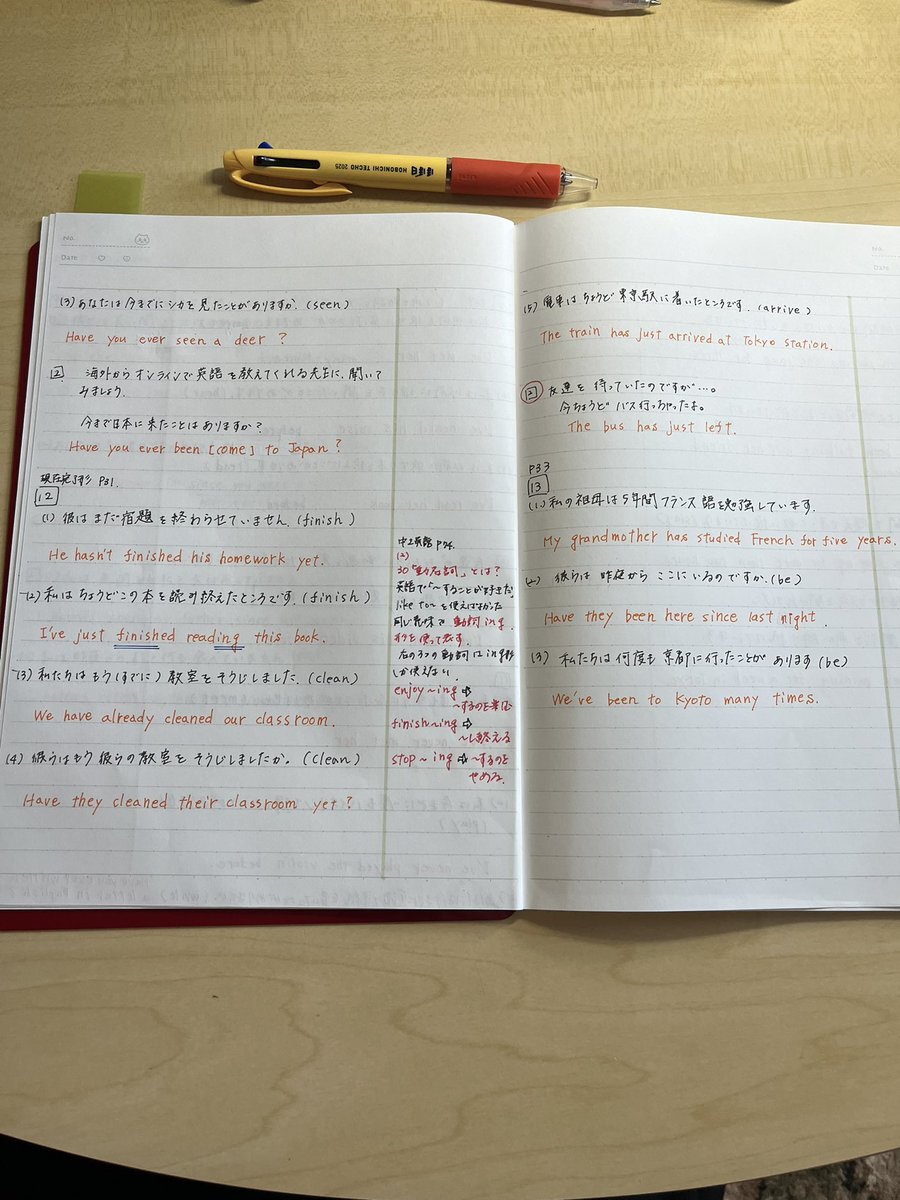 HOBONICHI TECHO 2025
No.
Date
(3) あなたは今までにシカを見たことがありますか. (seen)
Have you ever seen a deer ?
2 海外からオンラインで英語を教えてくれる先生に、聞いて
みましょう.
今まで日本に来たことはありますか?
Have you ever been [come] to Japan ?
現在完了形 P31.
12
(1) 彼はまだ宿題を終わらせていません. (finish)
He hasn't finished his homework yet.
(2) 私はちょうどこの本を読み終えたところです. (finish)
I've just finished reading this book.
(3) 私たちはもう(すでに) 教室をそうじしました. (clean)
We have already cleaned our classroom.
(4) 彼らはもう彼らの教室をそうじしましたか. (clean)
Have they cleaned their classroom yet ?
中2英語
(2)
30「動名詞」とは?
英語で「~することが好きだ」
like to~を使えばよかった
同じ意味で 動詞ing
を使って表す.
右の3つの動詞はing形
しか使えない.
enjoy ~ing ⇨
~するのを楽しむ
finish ~ing ⇨
~し終える
stop ~ ing ⇨ ~するのを
やめる
No.
Date
(5) 電車はちょうど東京駅に着いたところです. (arrive)
The train has just arrived at Tokyo station.
2 友達を待っていたのですが…。
今ちょうどバス行っちゃったよ。
The bus has just left.
P33
13
(1) 私の祖母は5年間フランス語を勉強しています.
My grandmother has studied French for five years.
(2) 彼らは昨夜からここにいるのですか. (be)
Have they been here since last night.
(3) 私たちは何度も京都に行ったことがあります (be)
We've been to Kyoto many times.